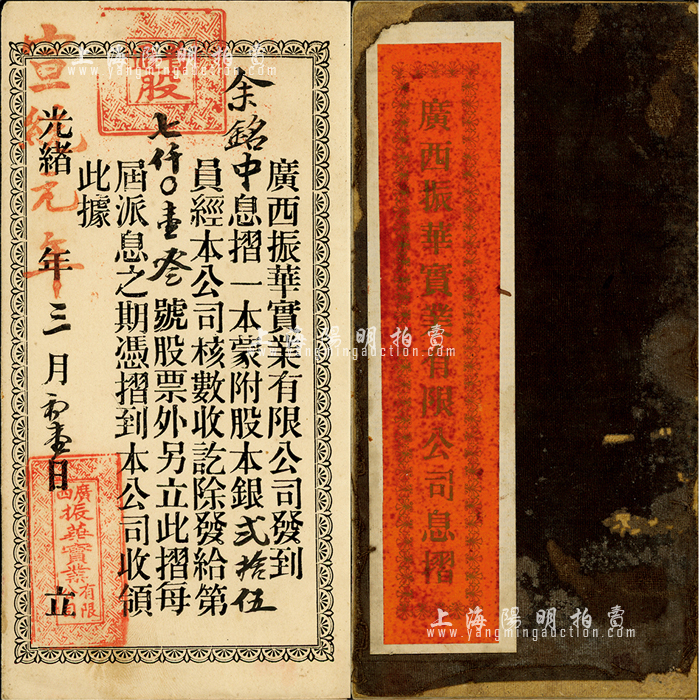 股
廣西振華實業有限公司發到
余銘中息摺一本蒙附股本銀弍拾伍
員經本公司核數收訖除發給第
七仟〇壹叁號股票外另立此摺每
屆派息之期憑摺到本公司收領
此據
光緒 年三月初壹日 立
宣統元年
廣西振華實業有限公司
廣西振華實業有限公司息摺
上海陽明拍賣
www.yangmingauction.com
上海陽明拍賣
www.yangmingauction.com
上海陽明拍賣
www.yangmingauction.com
上海陽明拍賣
www.yangmingauction.com